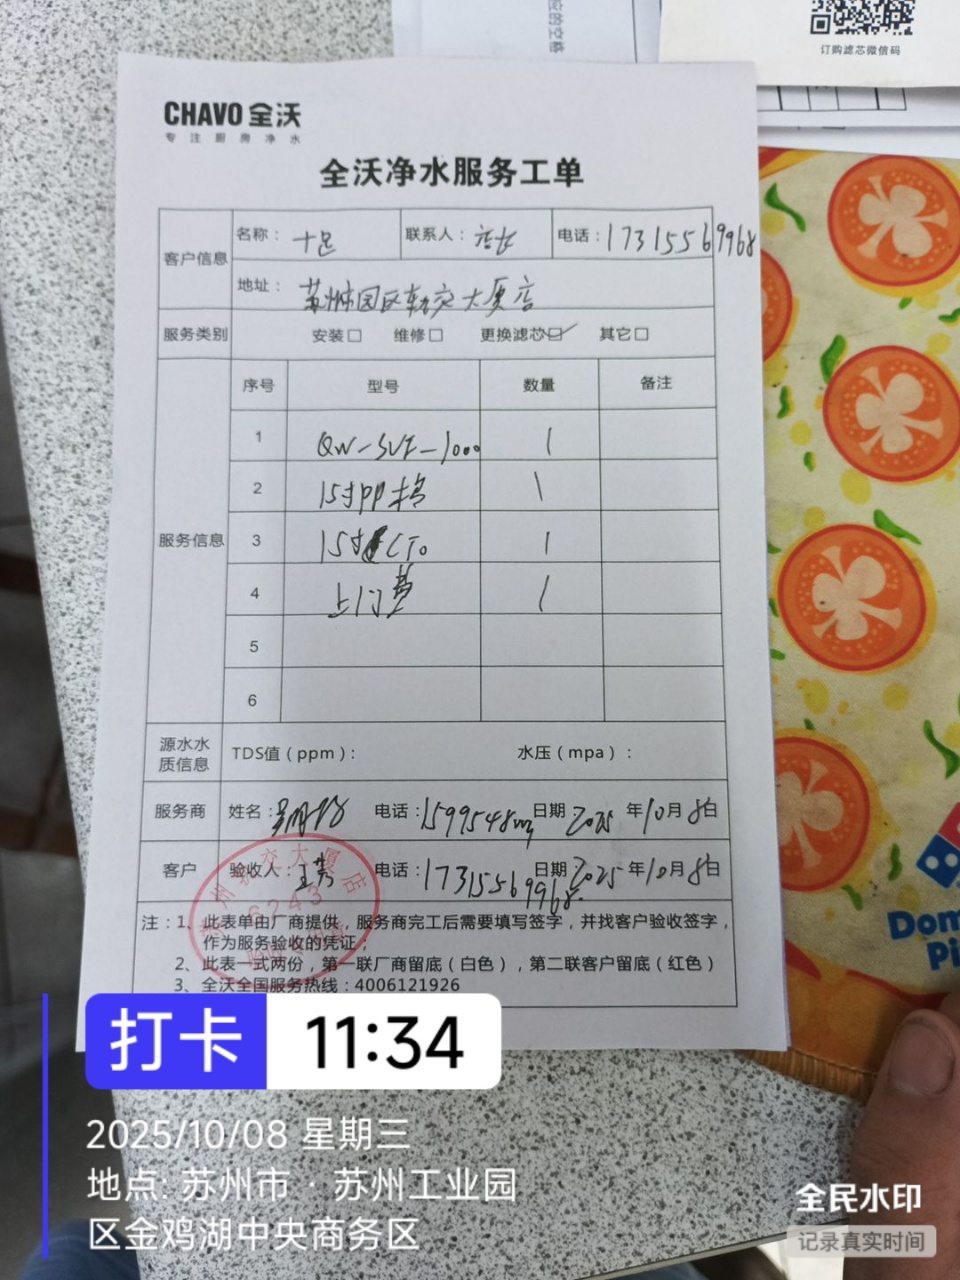 订购滤芯微信码
CHAVO 全沃
专注厨房净水
全沃净水服务工单
客户信息 名称：十足 联系人：店长 电话：17315569968
地址：苏州市园区轨交大厦店
服务类别 安装□ 维修□ 更换滤芯☑ 其它□
服务信息 序号 型号 数量 备注
1 QW-SVF-1000 1
2 15寸PP棉 1
3 15寸CTO 1
4 上门费 1
5
6
源水水质信息 TDS值（ppm）： 水压（mpa）：
服务商 姓名： 电话： 日期：2025年10月8日
客户 验收人： 电话：17315569968 日期：2025年10月8日
注：1、此表单由厂商提供，服务商完工后需要填写签字，并找客户验收签字，
作为服务验收的凭证；
2、此表一式两份，第一联厂商留底（白色），第二联客户留底（红色）
3、全沃全国服务热线：4006121926
6243
Dom
Pi
打卡 11:34
2025/10/08 星期三
地点: 苏州市 · 苏州工业园
区金鸡湖中央商务区
全民水印
记录真实时间